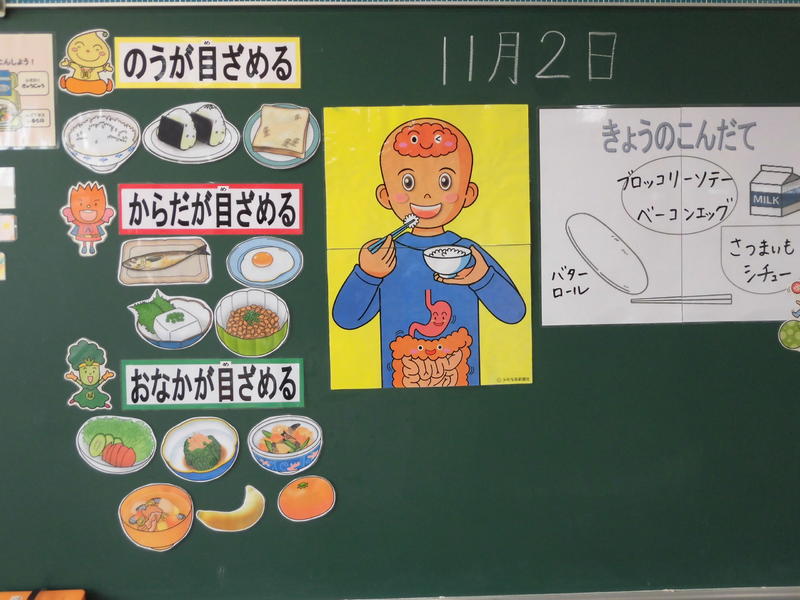 のうが目ざめる
め
11月2日
きょうのこんだて
ブロッコリーソテー
ベーコンエッグ
MILK
さつまいも
シチュー
バター
ロール
からだが目ざめる
め
おなかが目ざめる
め